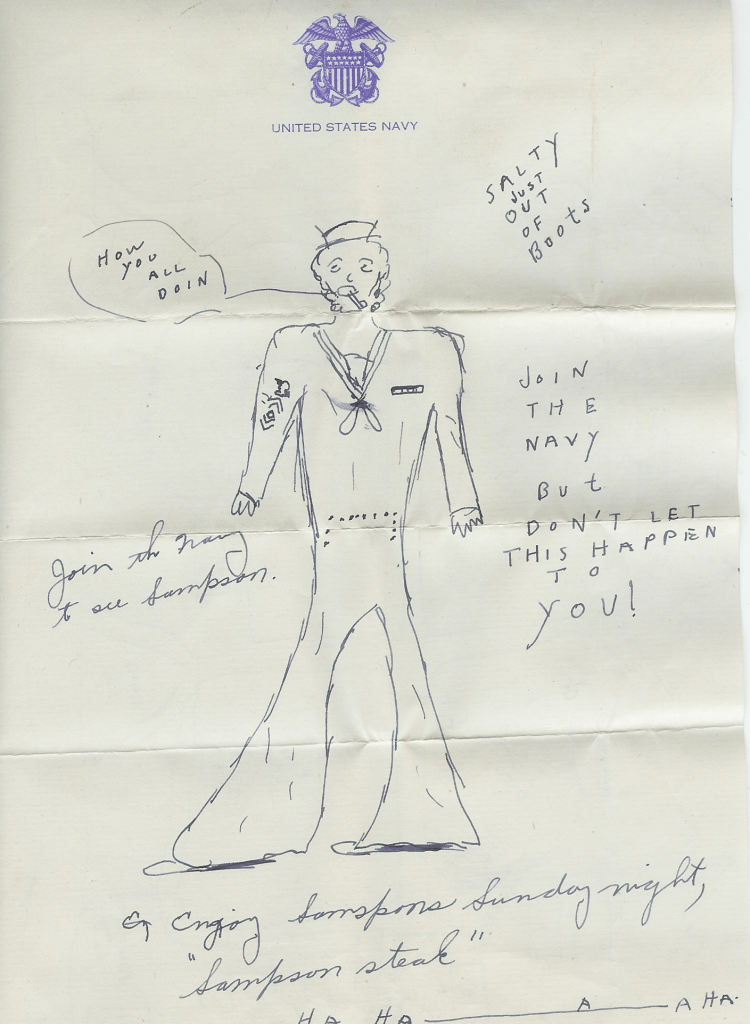 UNITED STATES NAVY
SALTY
JUST
OUT
OF
BOOTS
HOW
YOU
ALL
DOIN
JOIN
THE
NAVY
BUT
DON'T LET
THIS HAPPEN
TO
YOU!
Join th Navy
to see Sampson.
Enjoy Samspons Sunday night,
"Sampson steak"
HA HA A A HA.